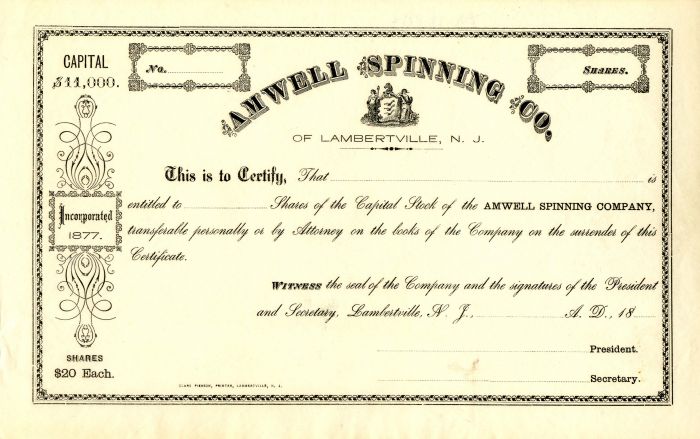 CAPITAL
$11,000.
No.
SHARES.
AMWELL SPINNING CO.
OF LAMBERTVILLE, N. J.
This is to Certify, That is
entitled to Shares of the Capital Stock of the AMWELL SPINNING COMPANY,
transferable personally or by Attorney on the books of the Company on the surrender of this
Certificate.
Incorporated
1877.
WITNESS the seal of the Company and the signatures of the President
and Secretary, Lambertville, N. J., A. D., 18
President.
Secretary.
SHARES
$20 Each.
CLARK PIERSON, PRINTER, LAMBERTVILLE, N. J.